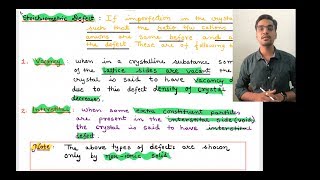 Stoichiometric Defect : If imperfection in the crystal
such that the ratio b/w cations
anions are same before and
the defect. These are of following
1. Vacancy : when in a crystalline substance some
of the lattice sides are vacant the
crystal is said to have vacancy
due to this defect density of crystal
decreases.
2. Interstitial : when some extra constituent particles
are present in the interstitial side (void)
the crystal is said to have interstitial
defect.
Note : The above types of defects are shown
only by non-ionic solid